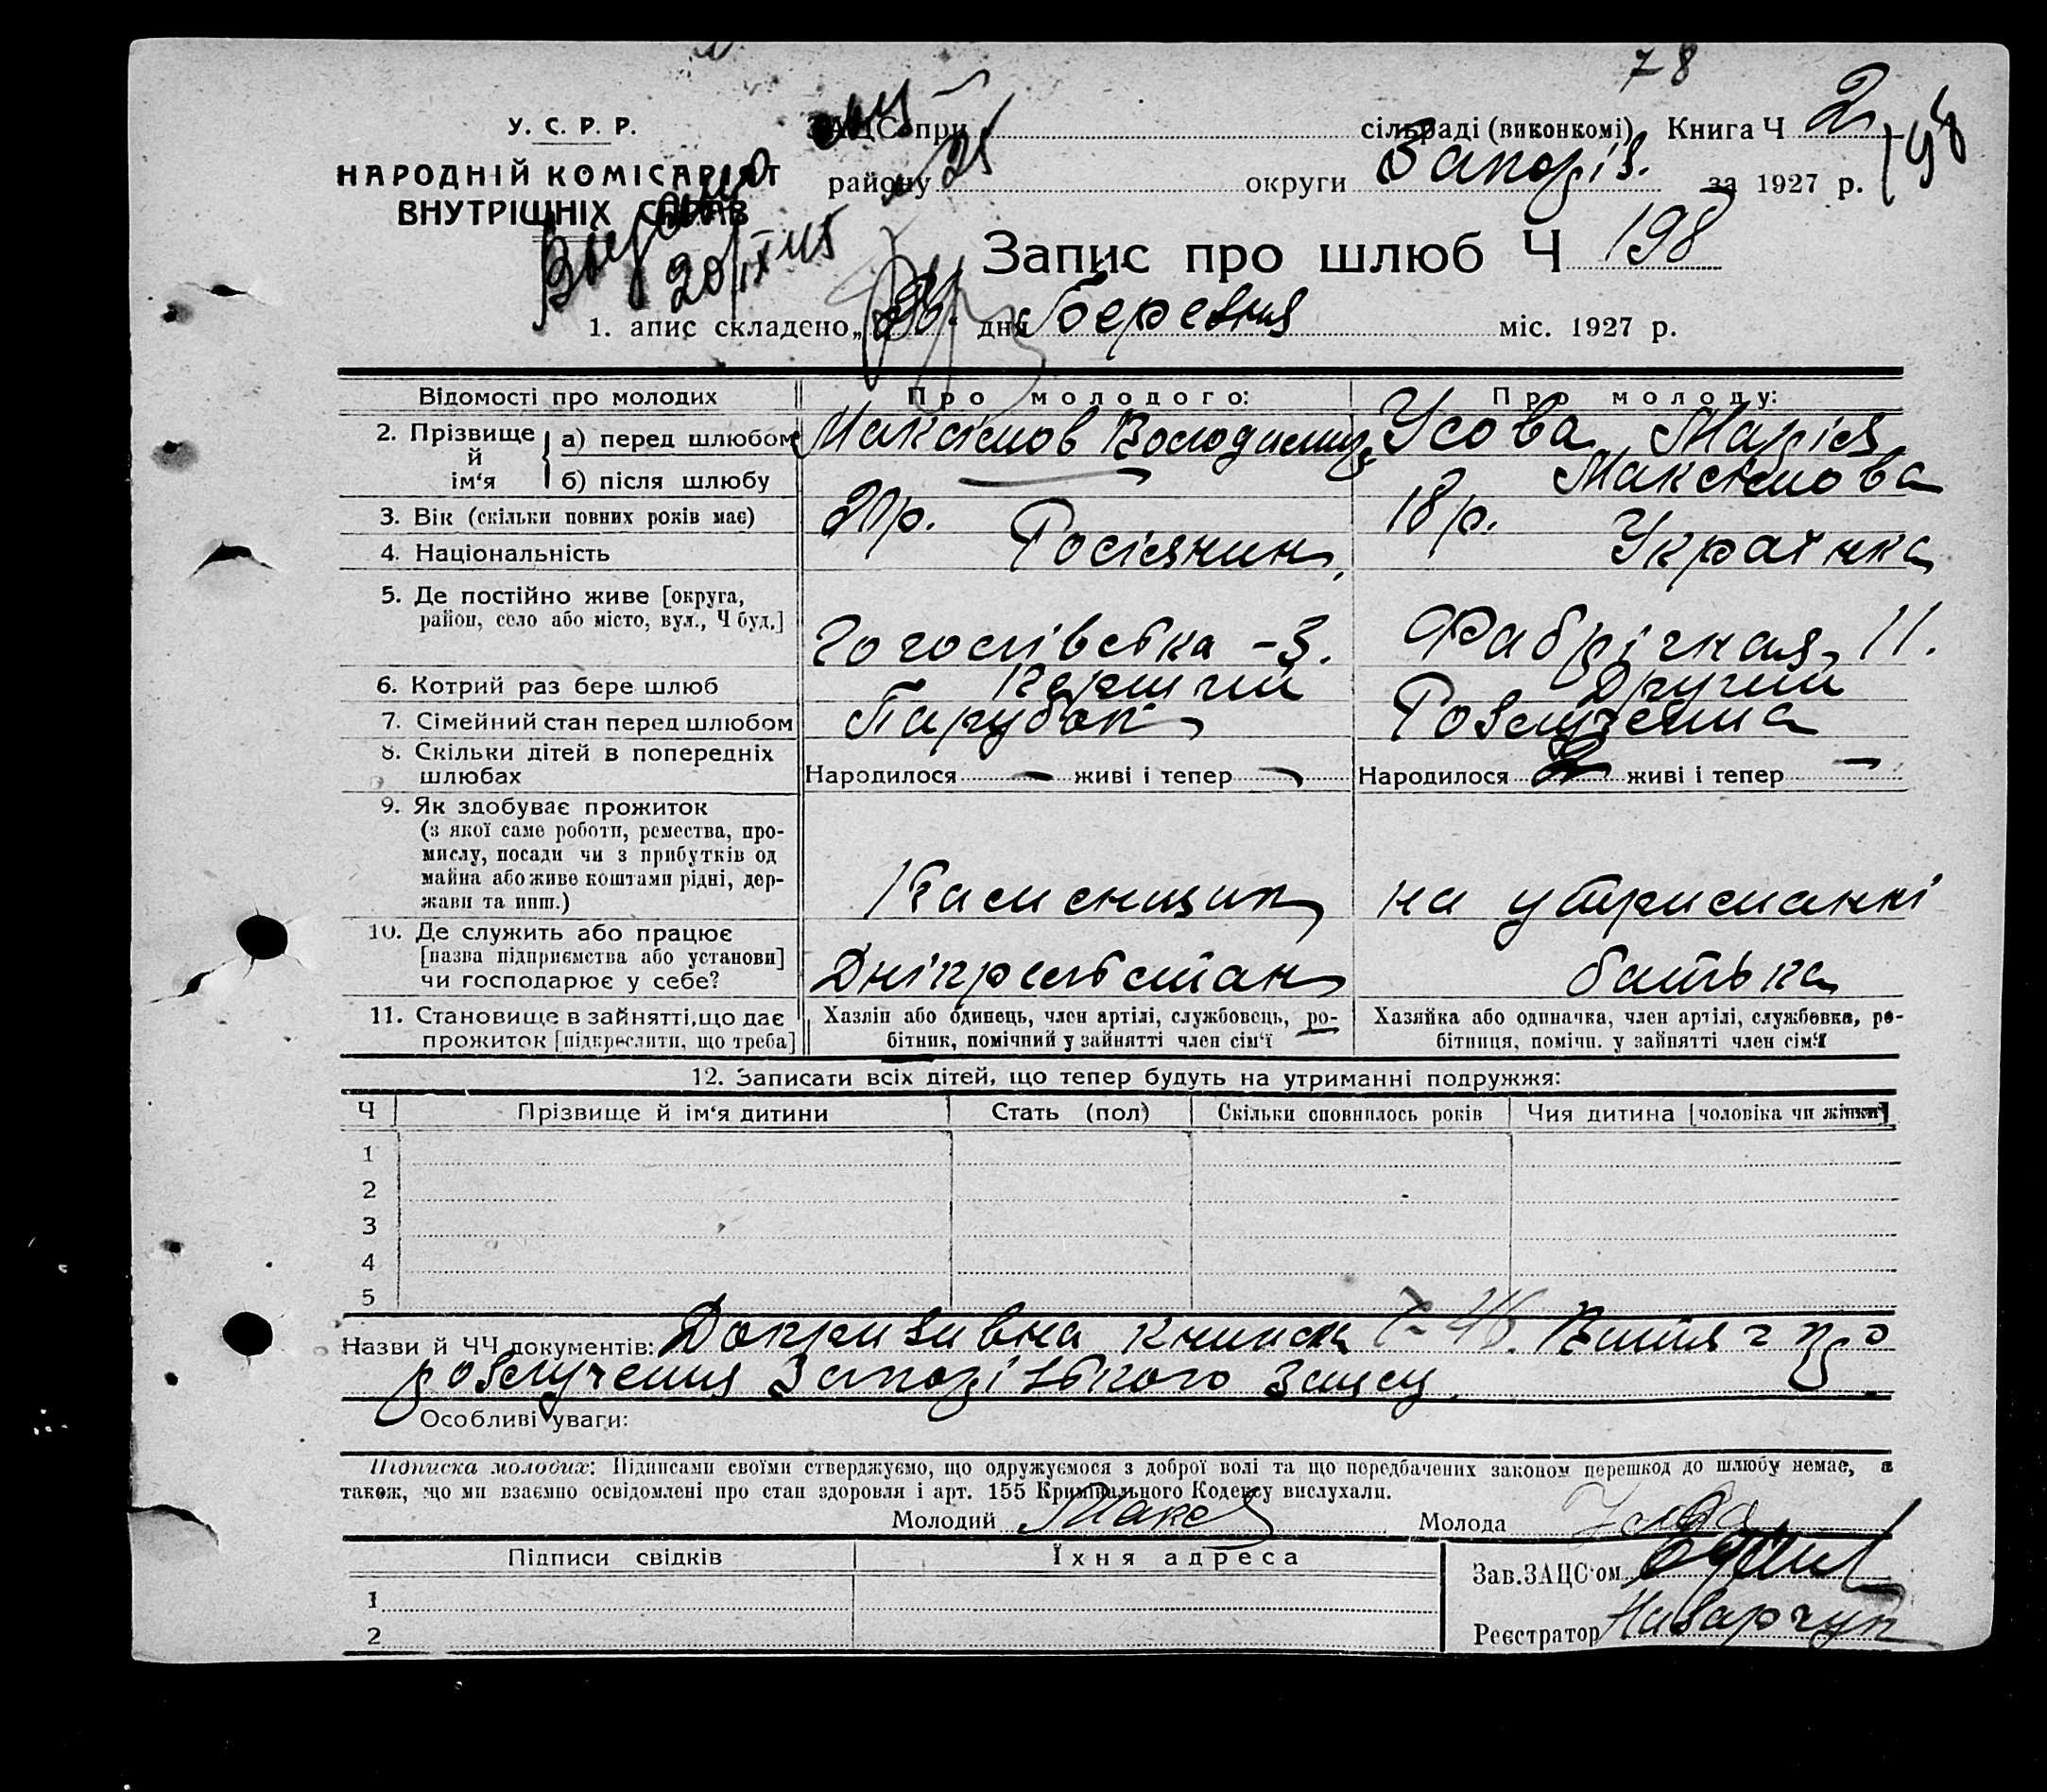 78
У. С. Р. Р.
НАРОДНІЙ КОМІСАРІЯТ
ВНУТРІШНІХ СПРАВ
ЗАЦС при сільраді (виконкомі) Книга Ч 2
198
району округи Запоріз. за 1927 р.
20/IX
Запис про шлюб Ч 198
1. апис складено „ “ дня Березня міс. 1927 р.
Відомості про молодих Про молодого: Про молоду:
2. Прізвище й ім‘я
а) перед шлюбом Максімов Володимир Усова Марія
б) після шлюбу — Максімова
3. Вік (скільки повних років має) 20 р. 18 р.
4. Національність Росіянин, Українка
5. Де постійно живе [округа,
район, село або місто, вул., Ч буд.] Гоголівська – 3. Фабрічная, 11.
6. Котрий раз бере шлюб Перший Другий
7. Сімейний стан перед шлюбом Парубок Розлучена
8. Скільки дітей в попередніх
шлюбах Народилося — живі і тепер — Народилося живі і тепер —
9. Як здобуває прожиток
(з якої саме роботи, ремества, про-
мислу, посади чи з прибутків од
майна або живе коштами рідні, дер-
жави та инш.) Каменщик на утриманні
10. Де служить або працює
[назва підприємства або установи]
чи господарює у себе? батька
11. Становище в зайнятті, що дає
прожиток [підкреслити, що треба]
Хазяїн або одинець, член артілі, службовець, ро-
бітник, помічний у зайнятті член сім‘ї
Хазяйка або одиначка, член артілі, службовка, ро-
бітниця, помічн. у зайнятті член сім‘ї
12. Записати всіх дітей, що тепер будуть на утриманні подружжя:
Ч Прізвище й ім‘я дитини Стать (пол) Скільки сповнилось років Чия дитина [чоловіка чи жінки]
1
2
3
4
5
Назви й ЧЧ документів: Допризивна книжка Ч 46. Витяг про
розлучення Запорізького Зацсу.
Особливі уваги:
Підписка молодих: Підписами своїми стверджуємо, що одружуємося з доброї волі та що передбачених законом перешкод до шлюбу немає, а
також, що ми взаємно освідомлені про стан здоровля і арт. 155 Кримінального Кодексу вислухали.
Молодий Макс Молода Усова
Підписи свідків Їхня адреса
Зав. ЗАЦС‘ом
1
2
Реєстратор